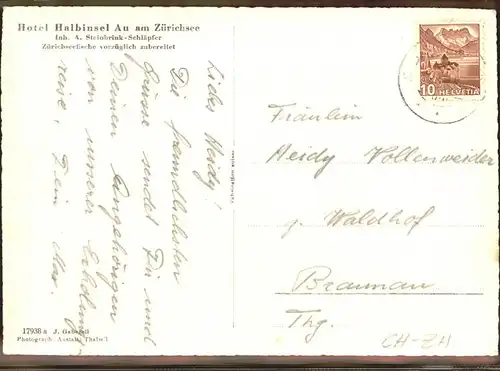 Hotel Halbinsel Au am Zürichsee
Inh. A. Steinbrink-Schläpfer
Zürichseefische vorzüglich zubereitet
Liebes Heidy!
Die freundlichsten
Grüsse sendet Dir und
Deinen Angehörigen
von unserer Erholungs-
reise, Dein Max.
10 HELVETIA
Fräulein
Heidy Vollenweider
z. Waldhof
Braunau
Thg.
CH-ZH
17938 a J. Gaberell
Photograph. Anstalt Thalwil